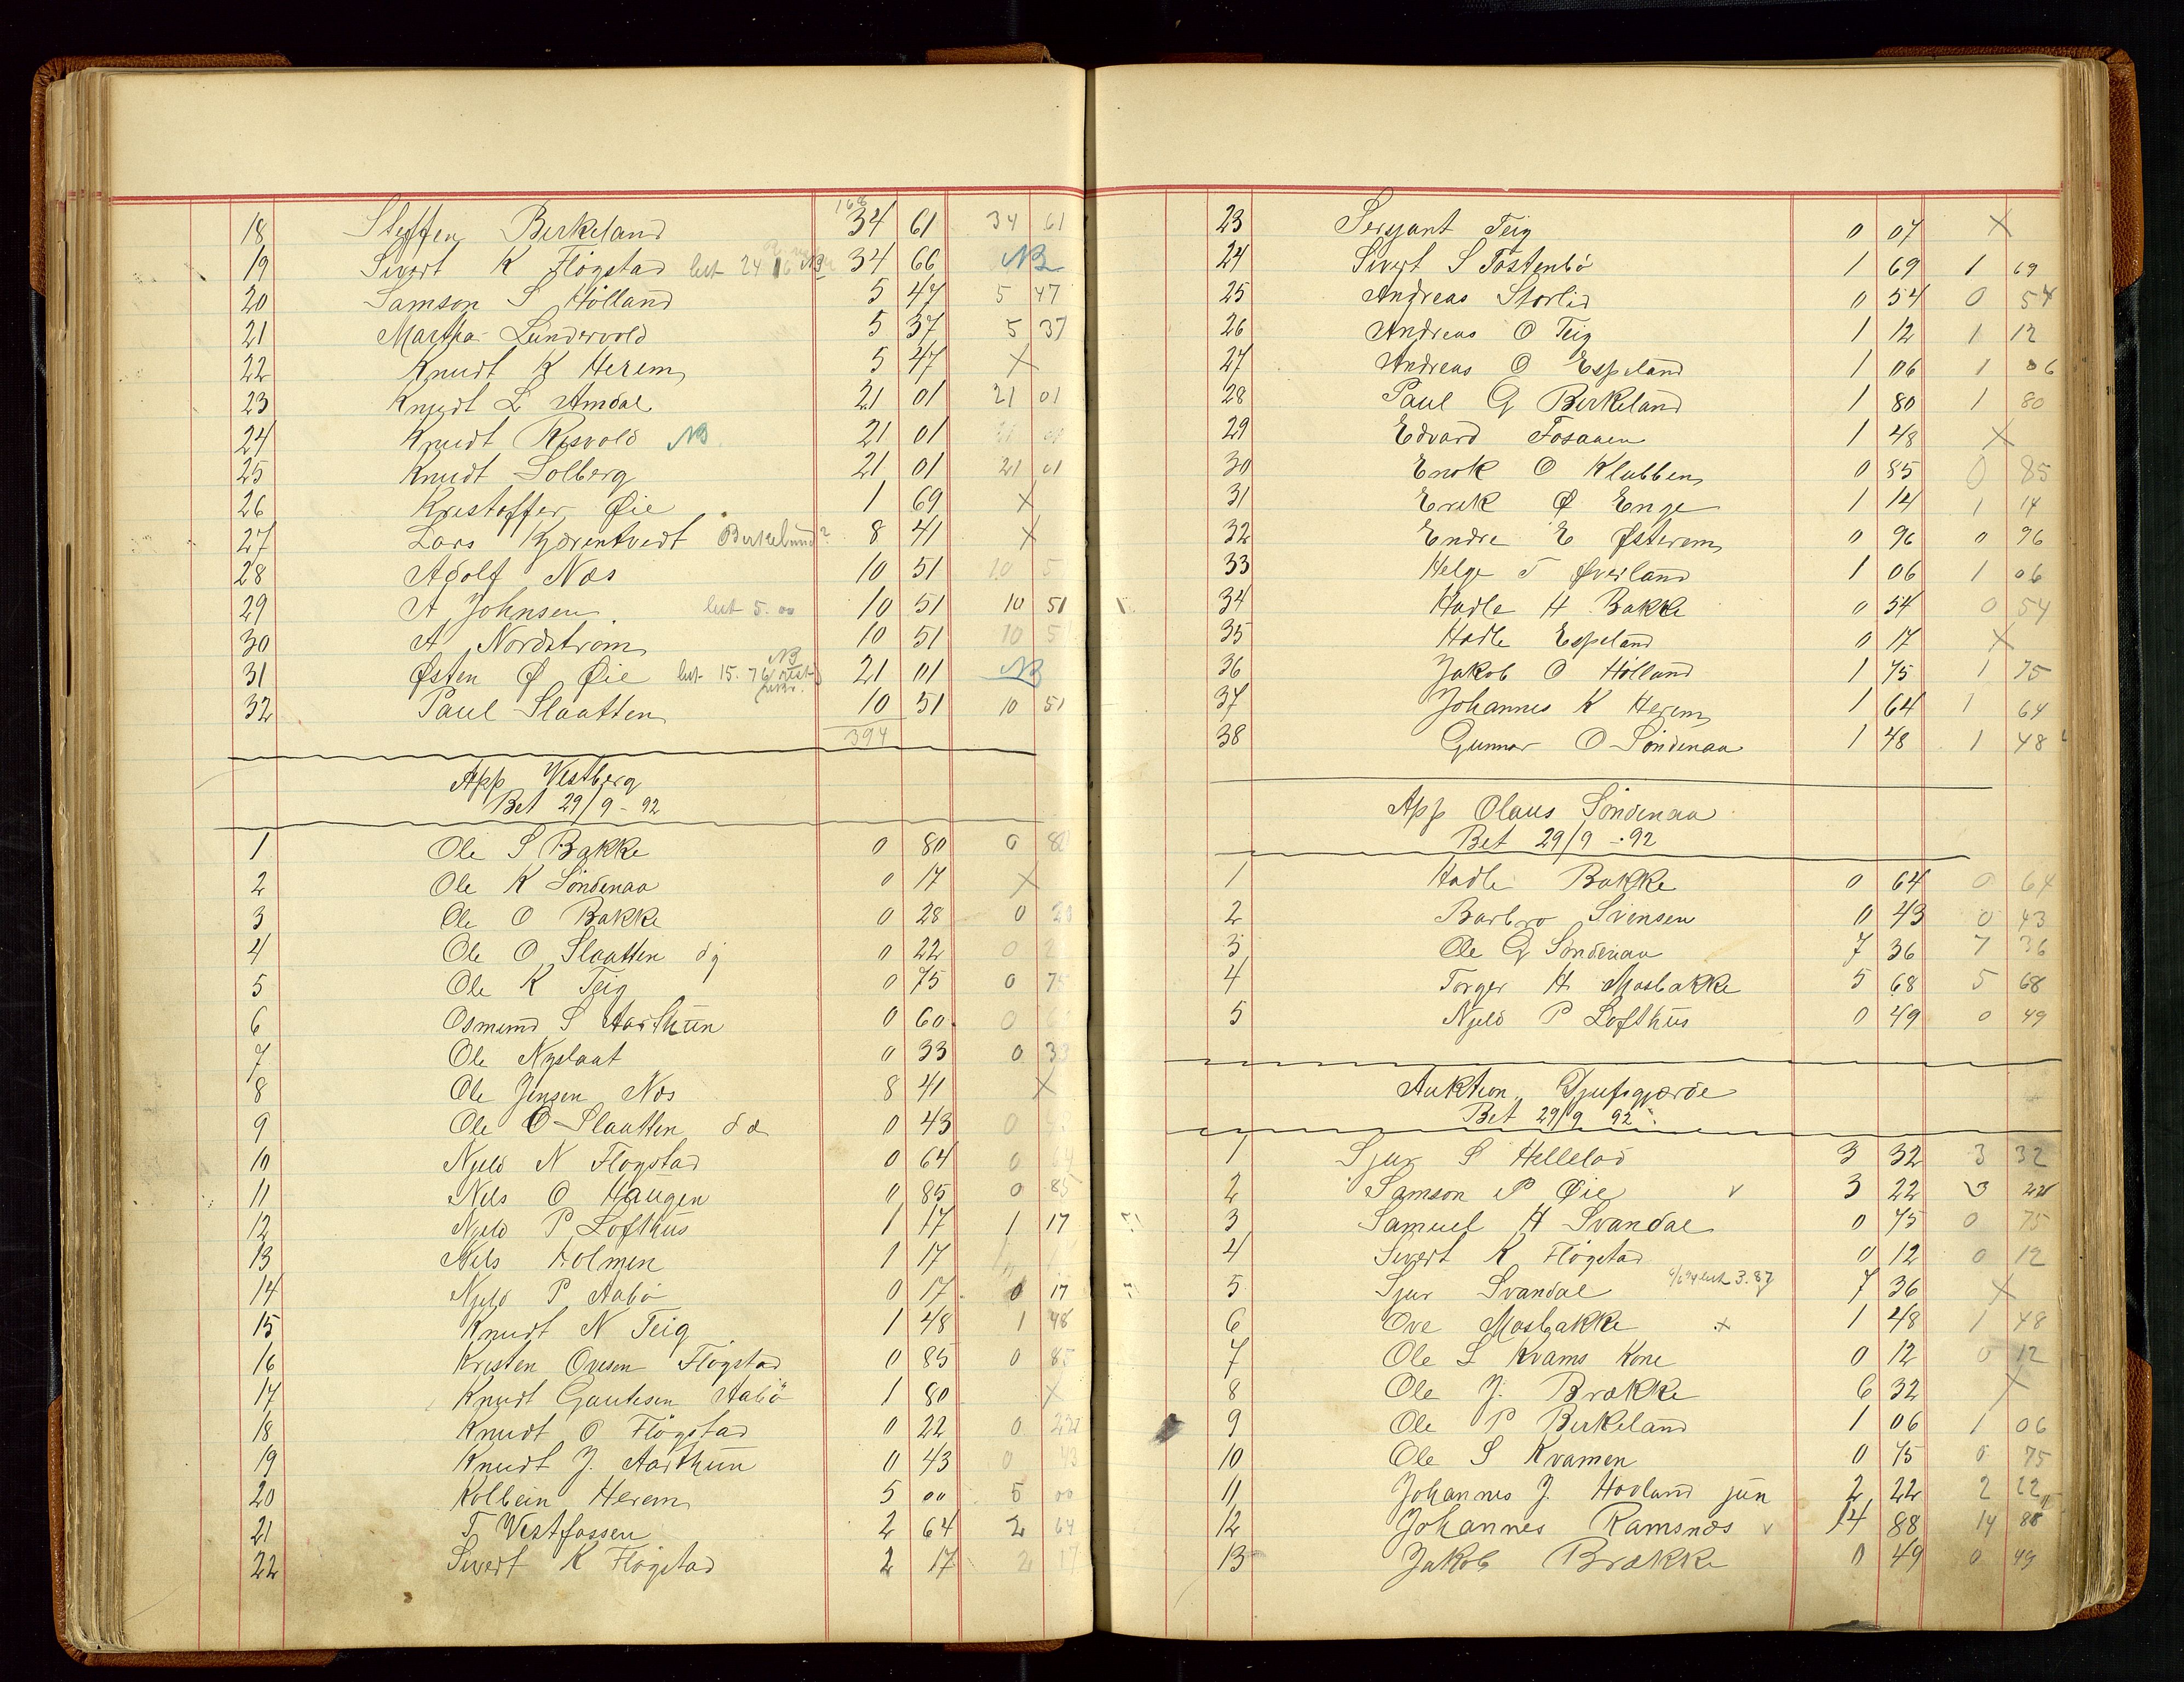 168
18 Steffen Birkeland 34 61 34 61
19 Sivert K Flögstad bet 24 16 NB 34 66 NB
20 Samson S Hölland 5 47 5 47
21 Martha Lundervold 5 37 5 37
22 Knudt K Herem 5 47 X
23 Knudt L Amdal 21 01 21 01
24 Knudt Risvold NB 21 01
25 Knudt Solberg 21 01 21 01
26 Kristoffer Øie 1 69 X
27 Lars Birkelund? 8 41 X
28 Adolf Næs 10 51 10 5
29 A Johnsen bet 5.00 10 51 10 51
30 A Nordström 10 51 10 5
31 Østen Ø Øie bet 15.76 NB 21 01 NB
32 Paul Slaatten 10 51 10 51
394
App Westberg
Bet 29/9 - 92
1 Ole S Bakke 0 80 0 80
2 Ole K Söndenaa 0 17 X
3 Ole O Bakke 0 28 0 28
4 Ole O Slaatten dy 0 22 0 2
5 Ole K Teig 0 75 0 75
6 Osmund S Aarthun 0 60 0
7 Ole Nyslaat 0 33 0 33
8 Ole Jensen Næs 8 41 X
9 Ole O Slaatten dæ 0 43 0
10 Njeld N Flogstad 0 64 0 64
11 Nils O Haugen 0 85 0 85
12 Njeld P Lofthus 1 17 1 17
13 Nils Holmen 1 17
14 Njeld P Aabö 0 17 0 17
15 Knudt N Teig 1 48 1 48
16 Kristen Ovesen Flögstad 0 85 0 85
17 Knudt Gautesen Aabö 1 80 X
18 Knudt O Flögstad 0 22 0 22
19 Knudt J. Aarthun 0 43 0 43
20 Kolbein Herem 5 00 5 00
21 T Vestfossen 2 64 2 64
22 Sivert K Flögstad 2 17 2 17
23 Sersjant Teig 0 07 X
24 Sivert S Töstenbö 1 69 1 69
25 Andreas Storlid 0 54 0 54
26 Andreas O Teig 1 12 1 12
27 Andreas O Espeland 1 06 1 06
28 Paul G Birkeland 1 80 1 80
29 Edvard Fosanen 1 48 X
30 Enok O Klubben 0 85 0 85
31 Erik Ø Enge 1 14 1 14
32 Endre E Østerem 0 96 0 96
33 Helge T Øverland 1 06 1 06
34 Hadle H Bakke 0 54 0 54
35 Hadle Espeland 0 17 X
36 Jakob O Hölland 1 75 1 75
37 Johannes K Herem 1 64 1 64
38 Gunnar O Söndenaa 1 48 1 48
App Olaus Söndenaa
Bet 29/9 - 92
1 Hadle Bakke 0 64 0 64
2 Barbro Svensen 0 43 0 43
3 Ole G Söndenaa 7 36 7 36
4 Torger H Mosbakke 5 68 5 68
5 Njeld P Lofthus 0 49 0 49
Auktion Djufsgjærde
Bet 29/9 92
1 Sjur S Helleland 3 32 3 32
2 Samson P Øie v 3 22 3 22
3 Samuel H Svandal 0 75 0 75
4 Sivert K Flögstad 0 12 0 12
5 Sjur Svandal bet 3.87 7 36 X
6 Ove Mosbakke x 1 48 1 48
7 Ole S Kvams Kone 0 12 0 12
8 Ole J. Brække 6 32 X
9 Ole P Birkeland 1 06 1 06
10 Ole S Kvamen 0 75 0 75
11 Johannes J. Hovland jun 2 22 2 22
12 Johannes Ramsnæs v 14 88 14 88
13 Jakob Brække 0 49 0 49